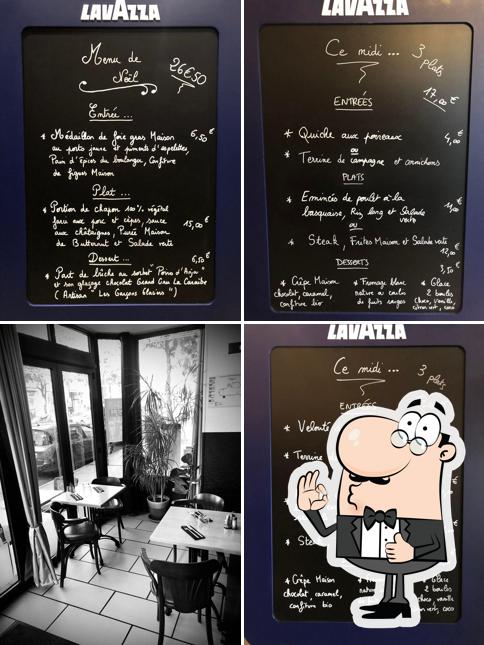 LAVAZZA
Menu de
Noël
26€50
Entrée ...
* Médaillon de foie gras Maison 6,50€
au porto jaune et piments d'espelettes,
Pain d'épices du boulanger, Confiture
de figues Maison
Plat ...
* Portion de chapon 100% végétal
farci aux porc et cèpes, sauce
aux châtaignes, Purée Maison 15,00€
de Butternut et Salade verte
Dessert ... 6,50€
* Part de bûche au sorbet "Poire d'Anjou"
et son glaçage chocolat Grand Cru La Caraïbe
(Artisan "Les Garçons Glaciers")
LAVAZZA
Ce midi ... 3
plats
17,00€
ENTRÉES
* Quiche aux poireaux 4,00€
ou
* Terrine de campagne et cornichons
PLATS
* Emincés de poulet à la
basquaise, Riz long et Salade
verte
ou
* Steak, Frites Maison et Salade verte
12,00€
DESSERTS
3,50€
* Crêpe Maison
chocolat, caramel,
confiture bio
* Fromage blanc
nature ou coulis
de fruits rouges
* Glace
2 boules
choco, vanille,
citron vert, coco
LAVAZZA
Ce midi ... 3
plats
ENTRÉES
* Velouté
* Terrine
* Crêpe Maison
chocolat, caramel,
confiture bio
Glace
2 boules
vanille
vert, coco